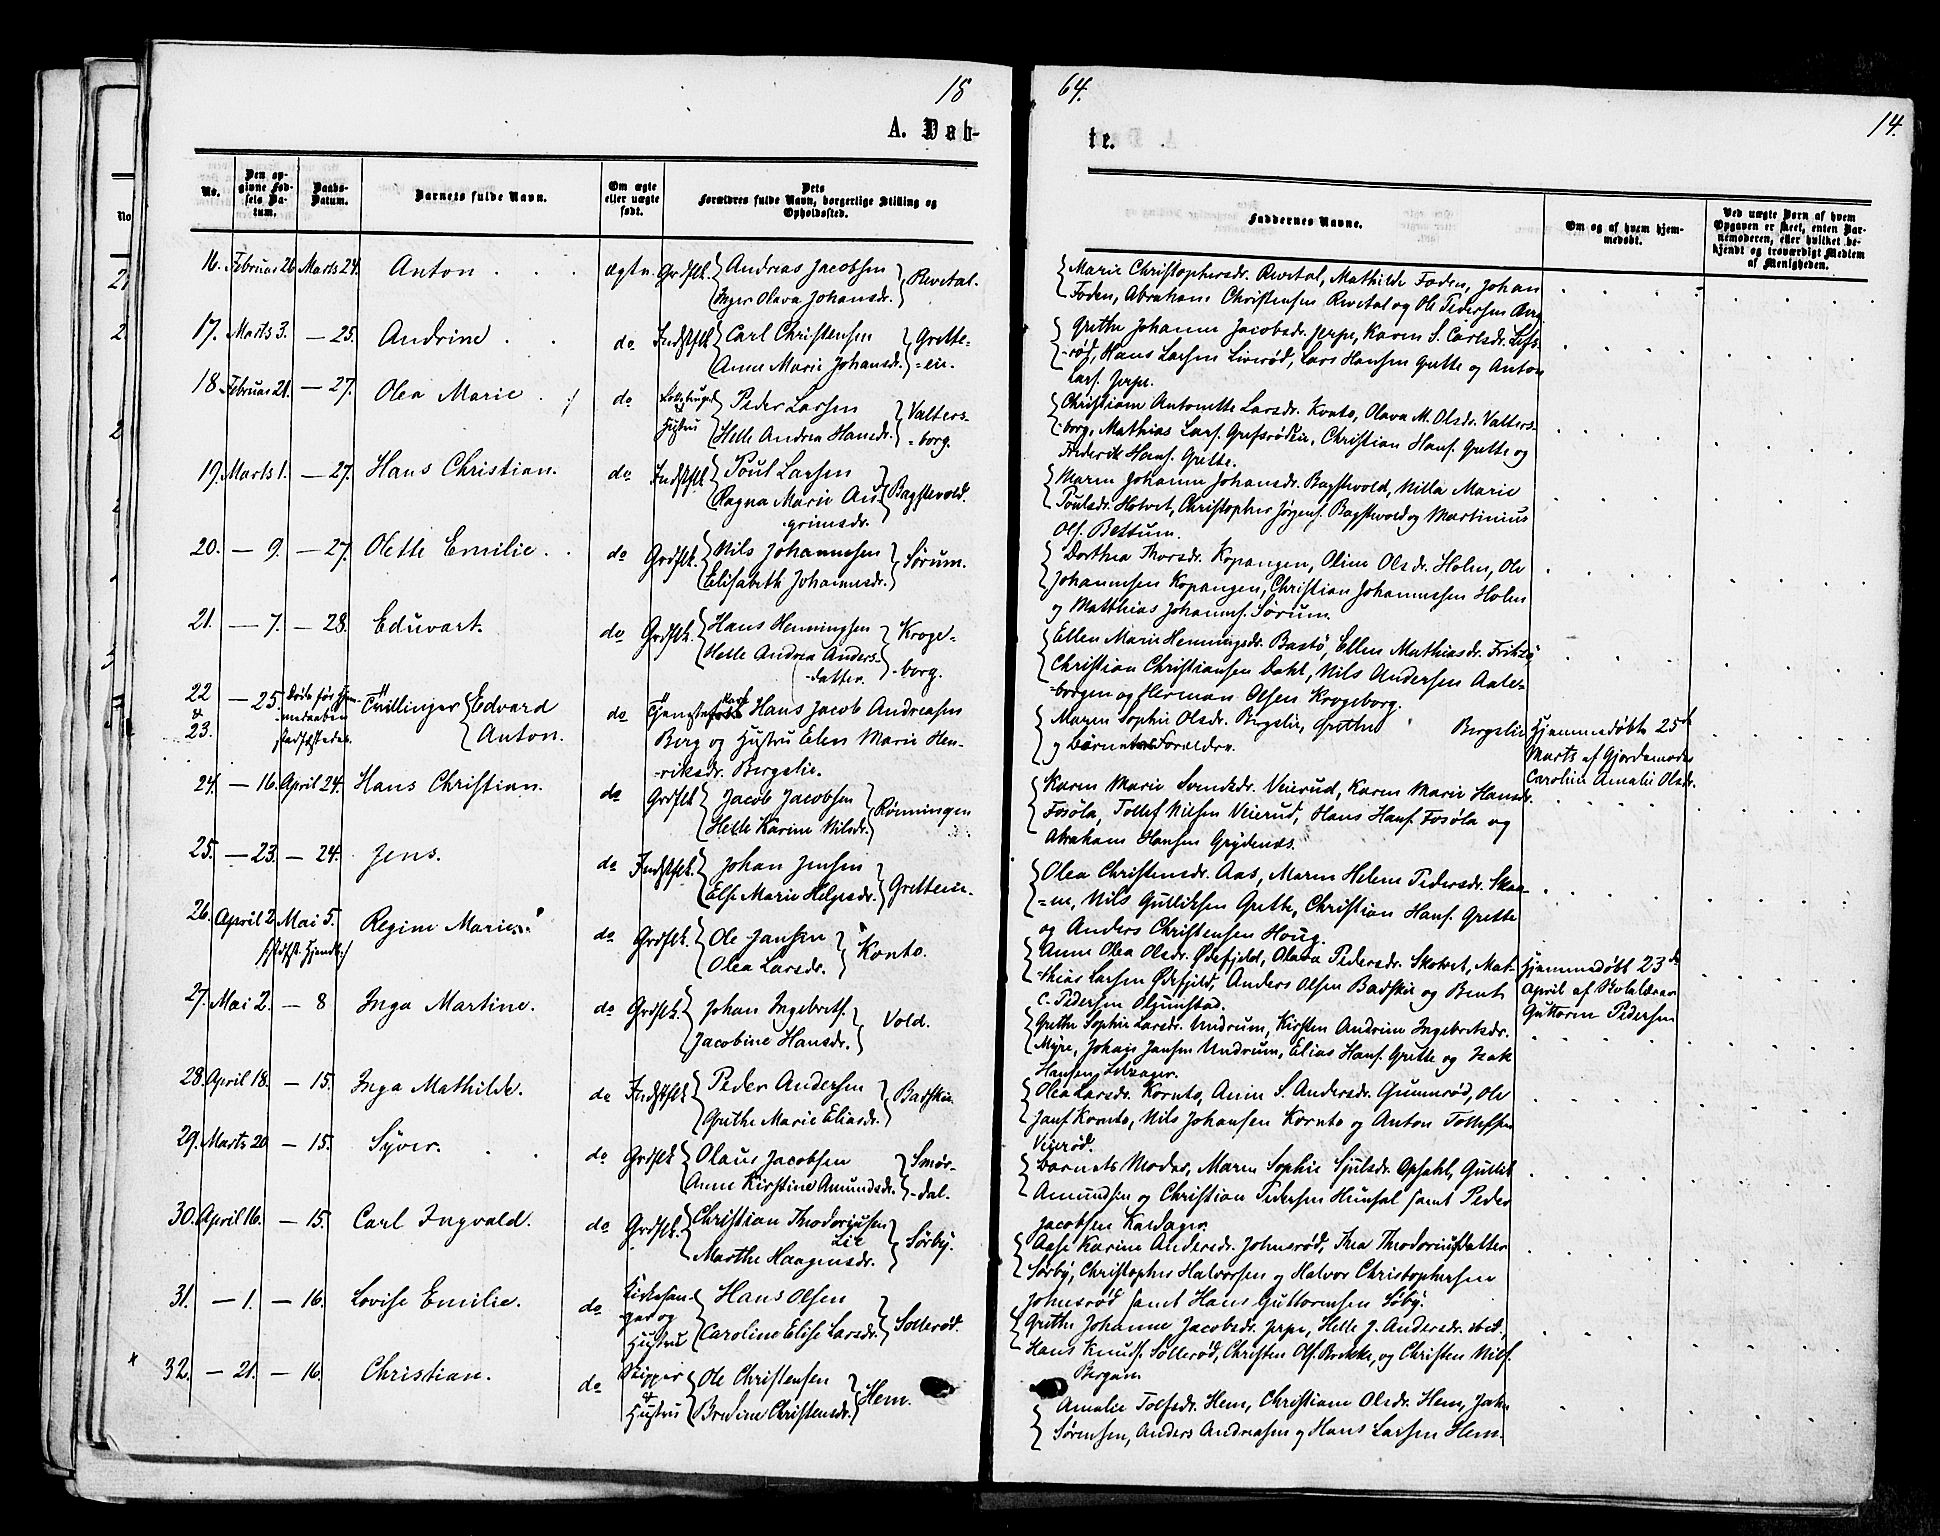 18
64.
14.
A. Døb-
te.
No.
Den op-
givne Fød-
sels Da-
tum.
Daabs-
Datum.
Barnets fulde Navn.
Om ægte
eller uægte
født.
Dets
Forældres fulde Navn, borgerlige Stilling og
Opholdssted.
Faddernes Navne.
Om og af hvem hjem-
medøbt.
Ved uægte Børn af hvem
Opgaven er skeet, enten Bar-
nemoderen, eller hvilket be-
kjendt og troværdigt Medlem
af Menigheden.
16. Februar 26 Marts 24. Anton ægte. Grdflk. Andreas Jacobsen
Inger Olava Johansdr. Revetal.
Marie Christophersdr. Revetal, Mathilde Foden, Johan
Foden, Abraham Christensen Revetal og Ole Pedersen
17. Marts 3. — 25. Andrine do Indstflk. Carl Christensen
Anne Marie Johansd. Grette-
-ein.
Grethe Johanne Jacobsdr. Jerpe, Karen S. Carlsdr. Lefs-
-rød, Hans Larsen Liverød, Lars Hansen Grette og Anton
Lars. Jerpe.
18 Februar 21. — 27. Olea Marie do Hustru Peder Larsen
Helle Andrea Hansdr. Valters-
-borg.
Christiane Antonette Larsdr. Konto, Olava M. Olsdr. Valters-
-borg, Mathias Lars. Grefsrødeie, Christian Hans. Grette og
Frederik Hans. Grette.
19. Marts 1. — 27. Hans Christian. do Indstflk. Poul Larsen
Ragna Marie An-
grimsdr. Bagstevold.
Maren Johanne Johansdr. Bagstevold, Nilla Marie
Poulsdr. Hotvet, Christopher Jørgens. Bagstevold og Martinius
Ols. Bettum.
20. — 9. — 27. Olette Emilie. do Grdflk. Nils Johannesen
Elisabeth Johannesdr. Sørum.
Dorthea Thorsdr. Kopangen, Oline Olsdr. Holm, Ole
Johannesen Kopangen, Christian Johannesen Holm
og Matthias Johannes. Sørum.
21. — 7. — 28. Eduvart. do Grdflk. Hans Henningsen
Helle Andrea Anders-
-datter. Kroge-
-borg.
Ellen Marie Henningsdr. Bastø, Ellen Mathiasdr. Frikzø
Christian Christiansen Dahl, Nils Andersen Aale-
-borgen og Herman Olsen Krogeborg.
22
&
23. — 25. Døde før Hjem-
-medaaben
stadfæstedes. Tvillinger Edvard
Anton. do Hans Jacob Andreasen
Berg og Hustru Elen Marie Hen-
-riksdr. Bergslie.
Maren Sophie Olsdr. Bergslie, Grethe Bergslie
og Børnenes Forældre.
Hjemmedøbte 25de
Marts af Gjordemoder
Caroline Amalie Olsdr.
24. — 16. April 24. Hans Christian. do Grdflk Jacob Jacobsen
Helle Karine Nilsdr. Rønningen
Karen Marie Svendsdr. Veierud, Karen Marie Hansdr.
Fosøla, Tollef Nilsen Veierud, Hans Hans. Fosøla og
Abraham Hansen Grydenæs.
25. — 23. — 24. Jens. do Indstflk. Johan Jensen
Else Marie Helgesdr. Gretteeie.
Olea Christensdr. Aas, Maren Helene Pedersdr. Skau-
-en, Nils Gulliksen Grette, Christian Hans. Grette
og Anders Christensen Houg.
26. April 2. Mai 5. Regine Marie. do Grdflk. Ole Jansen
Olea Larsdr. Konto.
Anne Olea Olsdr. Ødefjeld, Olava Pedersdr. Skotvet, Mat-
-thias Larsen Ødefjeld, Anders Olsen Badskie og Bent
C. Pedersen Olgumstad.
Hjemmedøbt 23de
April af Skolelærer
Guttorm Pedersen
27. Mai 2. — 8 Inga Martine. do Grdflk. Johan Ingebrets.
Jacobine Hansdr. Vold.
Grethe Sophie Larsdr. Undrum, Kirsten Andrine Ingebretsdr.
Myre, Johan Jansen Undrum, Elias Hans. Grette og Isak
Hansen Lelsager.
28. April 18. — 15. Inga Mathilde. do Indstflk Peder Andersen
Grethe Marie Eliasdr. Badskie.
Olea Larsdr. Kornto, Anne S. Andersdr. Gunnerød, Ole
Jans. Kornto, Nils Johansen Kornto og Anton Tollefsen
Veierød.
29. Marts 20 — 15. Syver. do Grdflk Olaus Jacobsen
Anne Kirstine Amundsdr. Smør-
-dal.
Barnets Moder, Maren Sophie Sjulsdr. Opsahl, Gullik
Amundsen og Christian Pedersen Hunsal samt Peder
Jacobsen Kaldager.
30. April 16. — 15. Carl Ingvald. do Grdflk. Christian Theodoriusen
Lie
Marthe Haagensdr. Sørby.
Aase Karine Andersdr. Johnsrød, Thea Theodoriusdatter
Sørby, Christopher Halvorsen og Halvor Christophersen
Johnsrød samt Hans Guttormsen Søby.
31. — 1. — 16. Lovise Emilie. do Kirkesan-
ger og
Hustru Hans Olsen
Caroline Elise Larsdr. Sollerød.
Grethe Johanne Jacobsdr. Jerpe, Helle J. Andersdr. ibid.,
Hans Knuds. Sollerød, Christen Ols. Brekke, og Christen Nils.
Bergan
32. — 21. — 16. Christian. do Skipper
&
Hustru Ole Christensen
Bredine Christensdr. Hem.
Amalie Tolfsdr. Hem, Christiane Olsdr. Hem, Jahn
Sørensen, Anders Andreasen og Hans Larsen Hem.